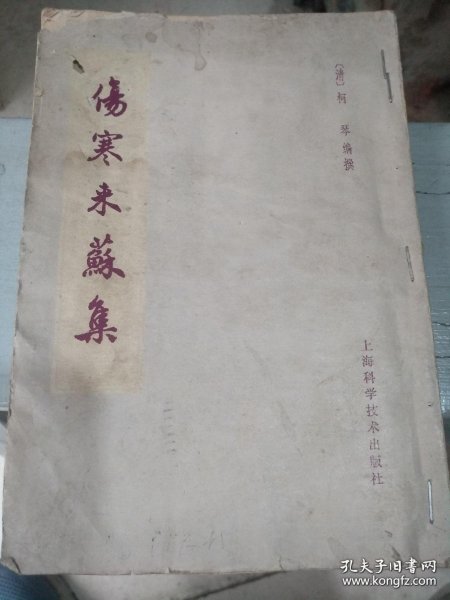 傷寒来蘇集
〔清〕柯琴編撰
上海科学技术出版社
孔夫子旧书网
www.kongfz.com